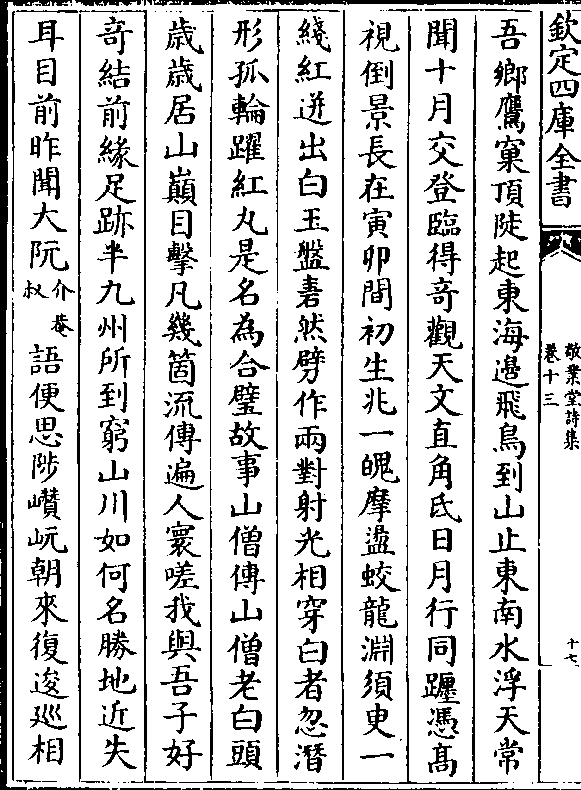 欽定四庫全書
敬業堂詩集
卷十三
十七
吾鄉鷹窠頂陡起東海邉飛烏到山止東南水浮天常
聞十月交登臨得竒觀天文直角氐日月行同躔憑髙
視倒景長在寅卯間初生兆一魄摩盪蛟龍淵須臾一
綫紅迸出白玉盤砉然劈作兩對射光相穿白者忽潛
形孤輪躍紅丸是名為合璧故事山僧傳山僧老白頭
歲歲居山巔目擊凡幾箇流傳遍人寰嗟我與吾子好
竒結前縁足跡半九州所到窮山川如何名勝地近失
耳目前昨聞大阮介菴叔語便思陟巑岏朝來復逡廵相